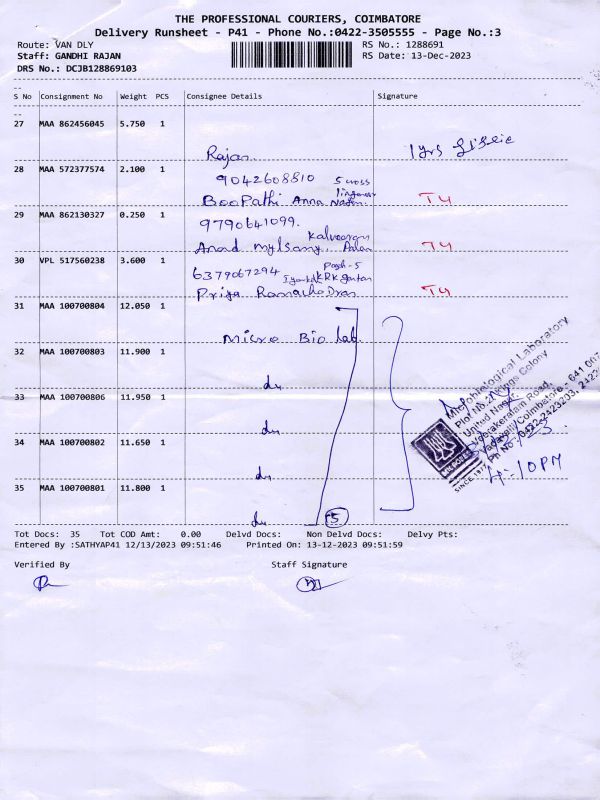 THE PROFESSIONAL COURIERS, COIMBATORE
Delivery Runsheet - P41 - Phone No.:0422-3505555 - Page No.:3
Route: VAN DLY
RS No.: 1288691
Staff: GANDHI RAJAN
RS Date: 13-Dec-2023
DRS No.: DCJB128869103
S No Consignment No Weight PCS Consignee Details Signature
27 MAA 862456045 5.750 1
Rajan
28 MAA 572377574 2.100 1
9042608810 5 cross
BooPathi Anna Nagar
29 MAA 862130327 0.250 1
9790641099.
Anand mylsamy
30 VPL 517560238 3.600 1
6379067294
Priya Ramachadran
31 MAA 100700804 12.050 1
Micro Bio Lab
32 MAA 100700803 11.900 1
33 MAA 100700806 11.950 1
34 MAA 100700802 11.650 1
35 MAA 100700801 11.800 1
5
Microbiological Laboratory
United Nagar,
Veerakeralam Road,
Vadavalli, Coimbatore - 641 007
SINCE 1977
4:10 PM
Tot Docs: 35 Tot COD Amt: 0.00 Delvd Docs: Non Delvd Docs: Delvy Pts:
Entered By :SATHYAP41 12/13/2023 09:51:46 Printed On: 13-12-2023 09:51:59
Verified By Staff Signature